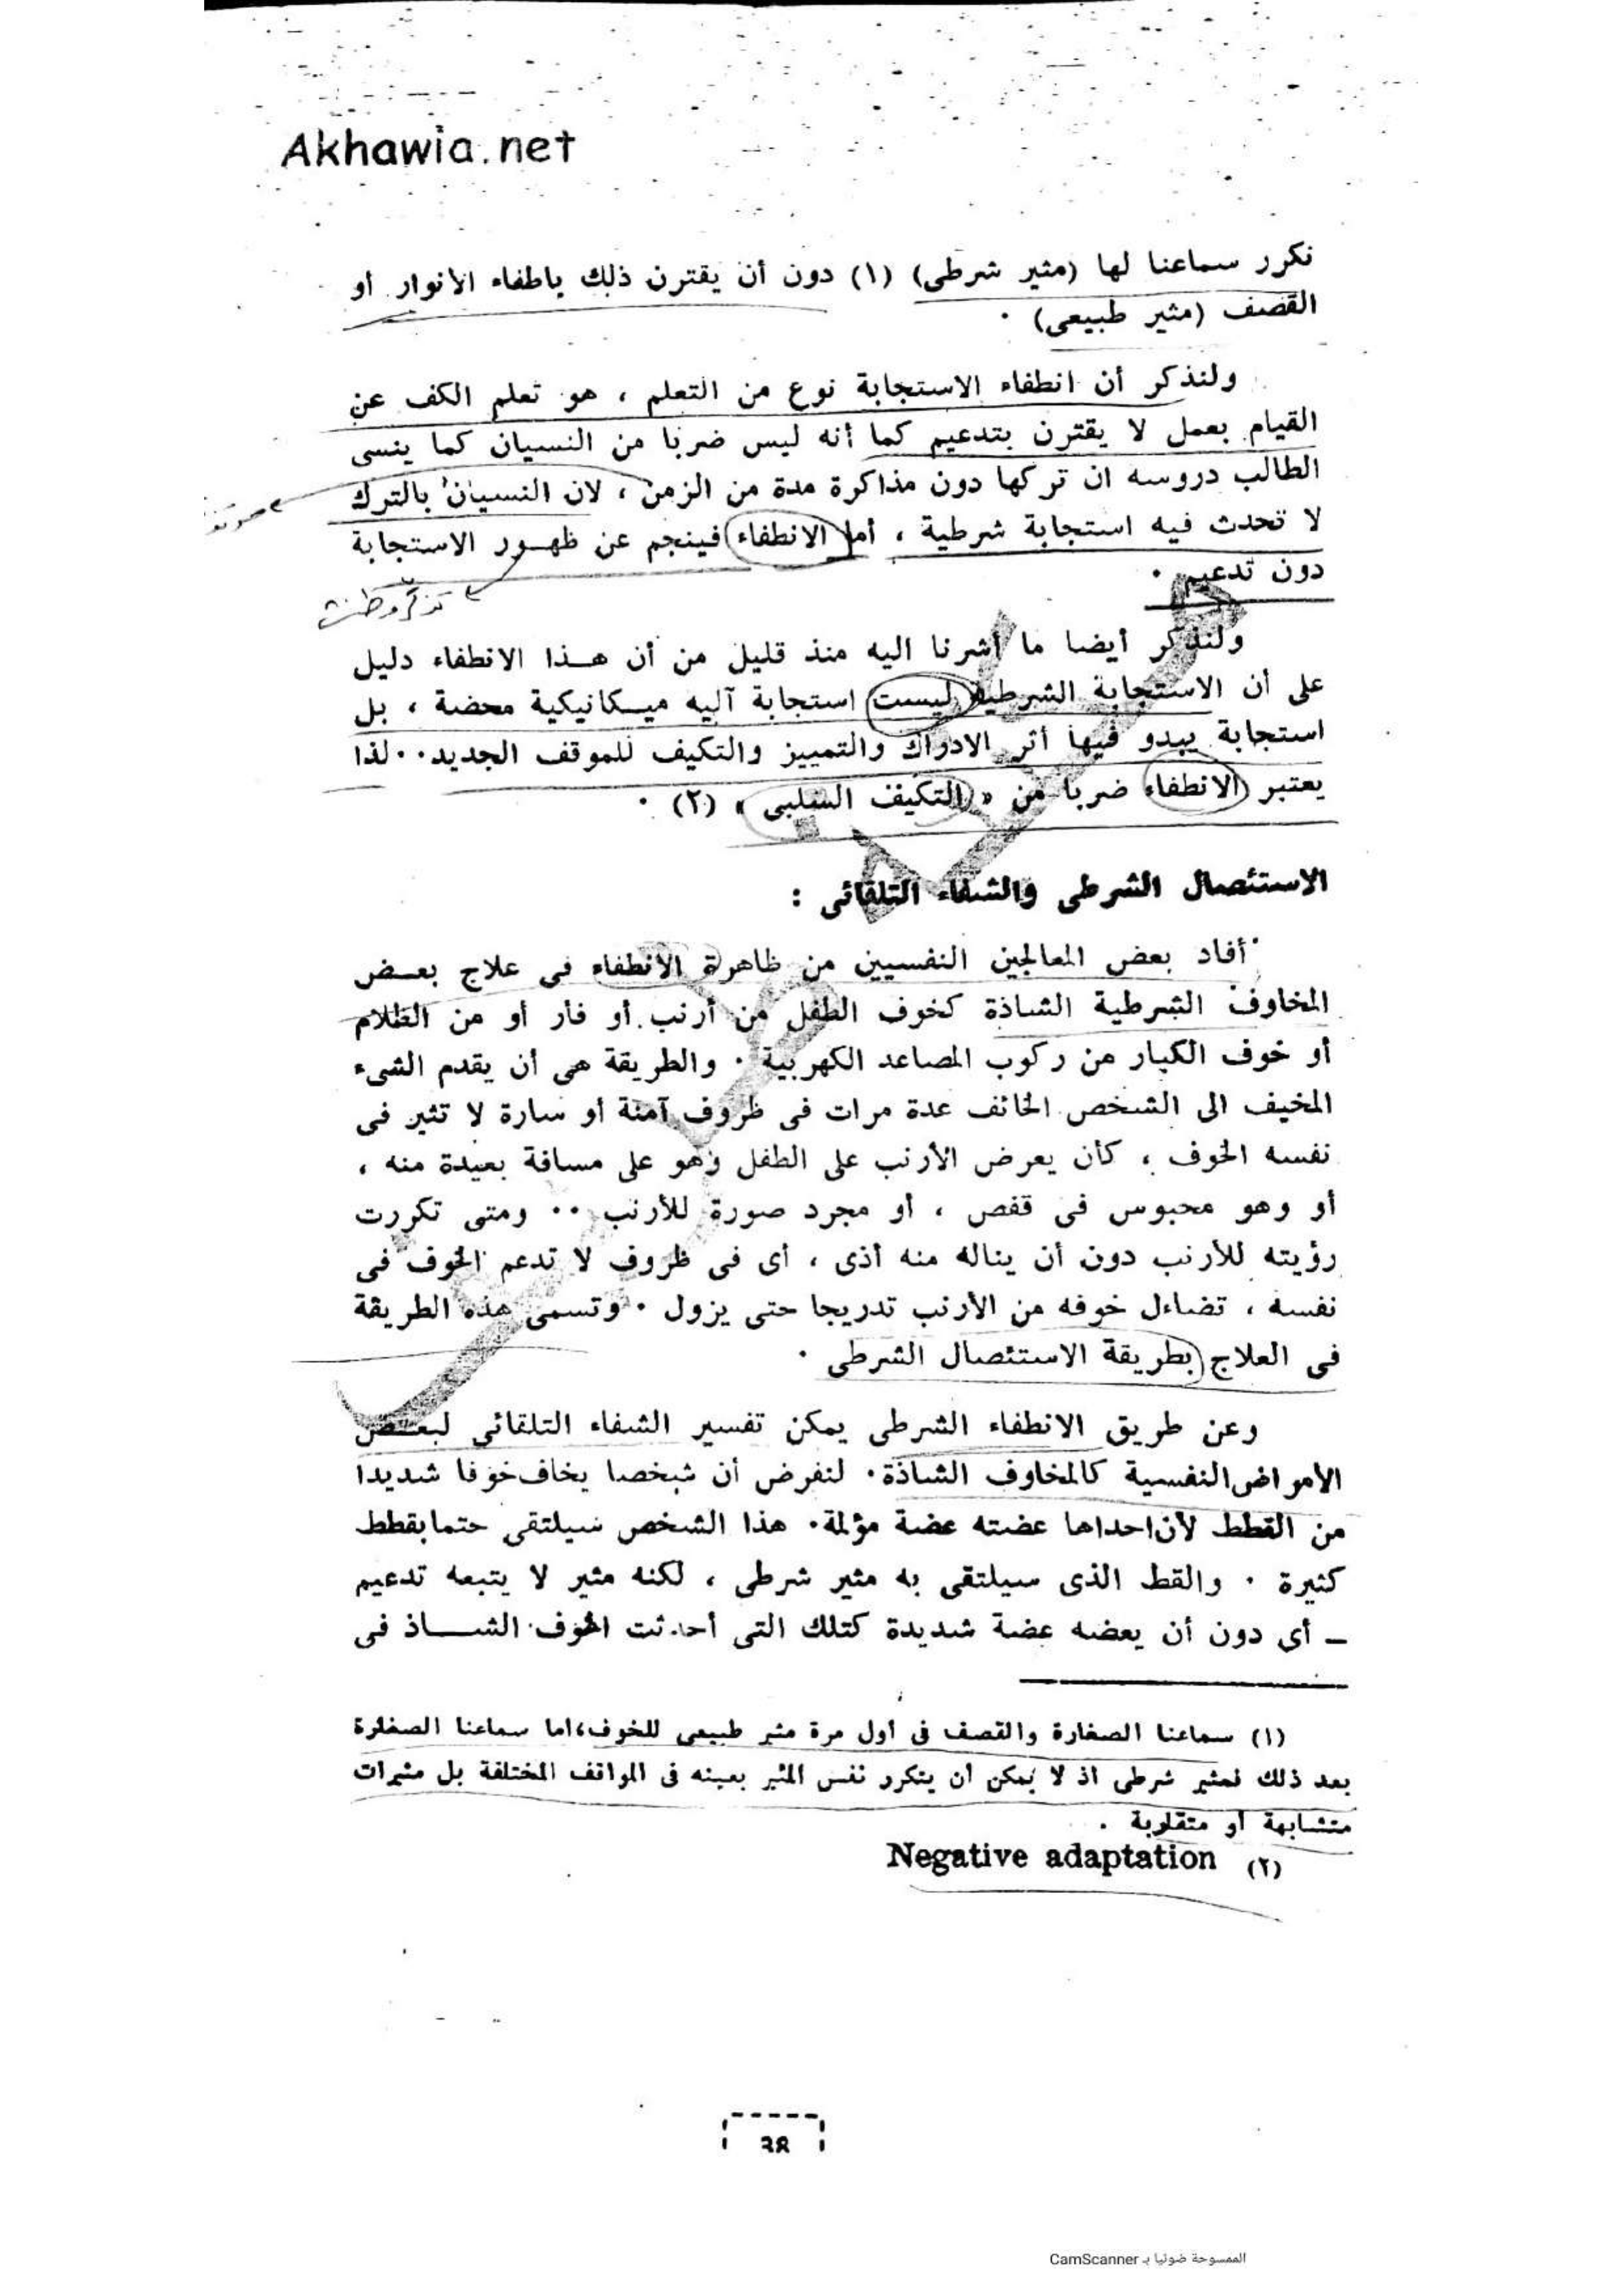 Akhawia.net
نكرر سماعنا لها (مثير شرطى) (١) دون أن يقترن ذلك باطفاء الأنوار أو
القصف (مثير طبيعى) ٠
ولنذكر أن انطفاء الاستجابة نوع من التعلم ، هو تعلم الكف عن
القيام بعمل لا يقترن بتدعيم كما أنه ليس ضربا من النسيان كما ينسى
الطالب دروسه ان تركها دون مذاكرة مدة من الزمن ، لان النسيان بالترك
لا تحدث فيه استجابة شرطية ، أما الانطفاء فينجم عن ظهـور الاستجابة
دون تدعيم ٠
ولنذكر أيضا ما أشرنا اليه منذ قليل من أن هـذا الانطفاء دليل
على أن الاستجابة الشرطية ليست استجابة آليه ميـكانيكية محضة ، بل
استجابة يبدو فيها أثر الادراك والتمييز والتكيف للموقف الجديد٠٠لذا
يعتبر الانطفاء ضربا من « التكيف السلبى » (٢) ٠
الاستئصال الشرطى والشفاء التلقائى :
أفاد بعض المعالجين النفسيين من ظاهرة الانطفاء فى علاج بعـض
المخاوف الشرطية الشاذة كخوف الطفل من أرنب أو فأر أو من الظلام
أو خوف الكبار من ركوب المصاعد الكهربية ٠ والطريقة هى أن يقدم الشىء
المخيف الى الشخص الخائف عدة مرات فى ظروف آمنة أو سارة لا تثير فى
نفسه الخوف ، كأن يعرض الأرنب على الطفل وهو على مسافة بعيدة منه ،
أو وهو محبوس فى قفص ، أو مجرد صورة للأرنب ٠٠ ومتى تكررت
رؤيته للأرنب دون أن يناله منه أذى ، أى فى ظروف لا تدعم الخوف فى
نفسه ، تضاءل خوفه من الأرنب تدريجا حتى يزول ٠ وتسمى هذه الطريقة
فى العلاج بطريقة الاستئصال الشرطى ٠
وعن طريق الانطفاء الشرطى يمكن تفسير الشفاء التلقائى لبعـض
الأمراض النفسية كالمخاوف الشاذة٠ لنفرض أن شخصا يخاف خوفا شديدا
من القطط لأن احداها عضته عضة مؤلمة٠ هذا الشخص سيلتقى حتما بقطط
كثيرة ٠ والقط الذى سيلتقى به مثير شرطى ، لكنه مثير لا يتبعه تدعيم
ــ أى دون أن يعضه عضة شديدة كتلك التى أحدثت الخوف الشــاذ فى
(١) سماعنا الصفارة والقصف فى أول مرة مثير طبيعى للخوف،اما سماعنا الصفارة
بعد ذلك فمثير شرطى اذ لا يمكن أن يتكرر نفس المثير بعينه فى المواقف المختلفة بل مثيرات
متشابهة أو متقاربة ٠
(٢) Negative adaptation
38
الممسوحة ضوئيا بـ CamScanner